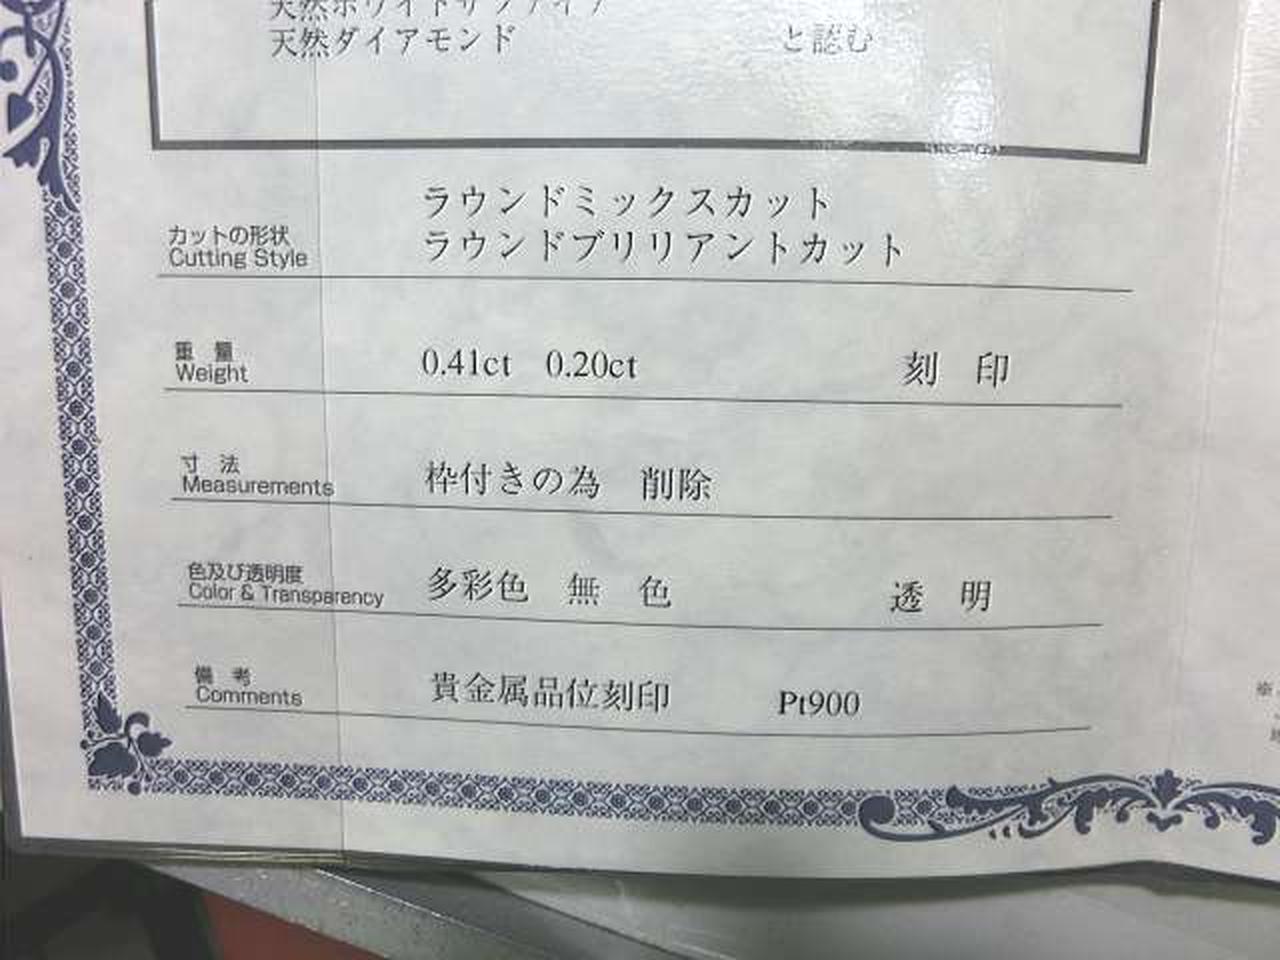 天然ホワイトサファイア
天然ダイアモンド と認む
カットの形状 ラウンドミックスカット
Cutting Style ラウンドブリリアントカット
重量 0.41ct 0.20ct 刻印
Weight
寸法 枠付きの為 削除
Measurements
色及び透明度 多彩色 無色 透明
Color & Transparency
備考 貴金属品位刻印 Pt900
Comments
※